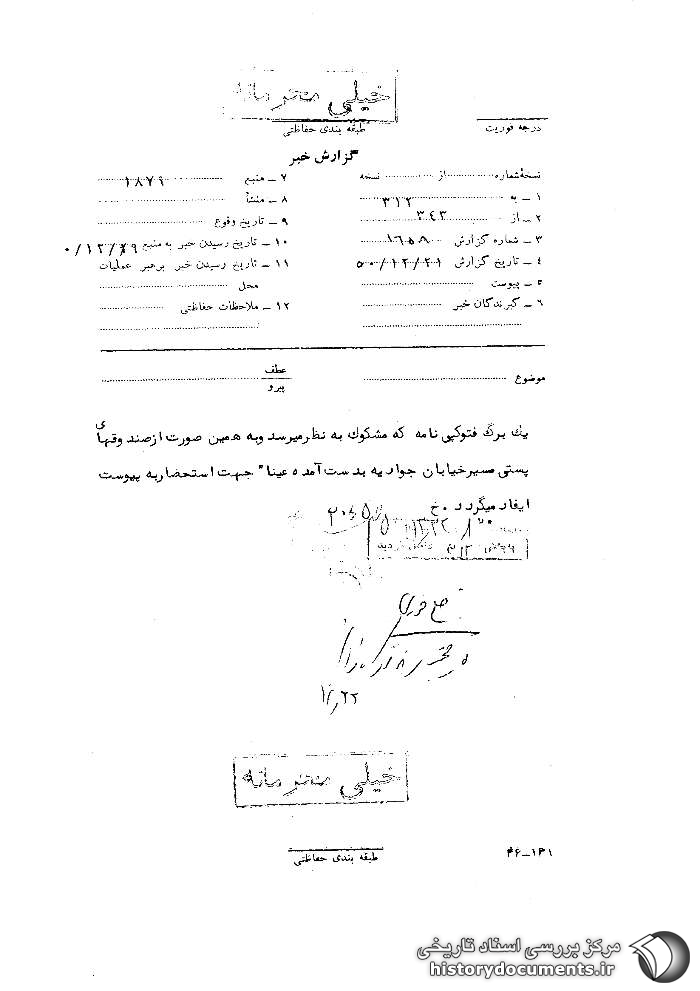 خیلی محرمانه
طبقه بندی حفاظتی
درجه فوریت
گزارش خبر
نسخهٔ شماره از نسخه
۱ ـ به ۳۱۲
۲ ـ از ۳۴۳
۳ ـ شماره گزارش ۱۶۵۸
۴ ـ تاریخ گزارش ۵۰/۱۲/۲۱
۵ ـ پیوست
۶ ـ گیرندگان خبر
۷ ـ منبع ۱۸۷۹
۸ ـ منشأ
۹ ـ تاریخ وقوع
۱۰ ـ تاریخ رسیدن خبر به منبع
۱۱ ـ تاریخ رسیدن خبر برهبر عملیات
محل
۱۲ ـ ملاحظات حفاظتی
موضوع
عطف
پیرو
یک برگ فتوکپی نامه که مشکوک به نظر میرسد و به همین صورت از صندوقهای
پستی مسیر خیابان جوادیه بدست آمده عینا" جهت استحضار به پیوست
ایفاد میگردد . خ
خیلی محرمانه
طبقه بندی حفاظتی
۴۶ـ۱۳۱
مرکز بررسی اسناد تاریخی
historydocuments.ir